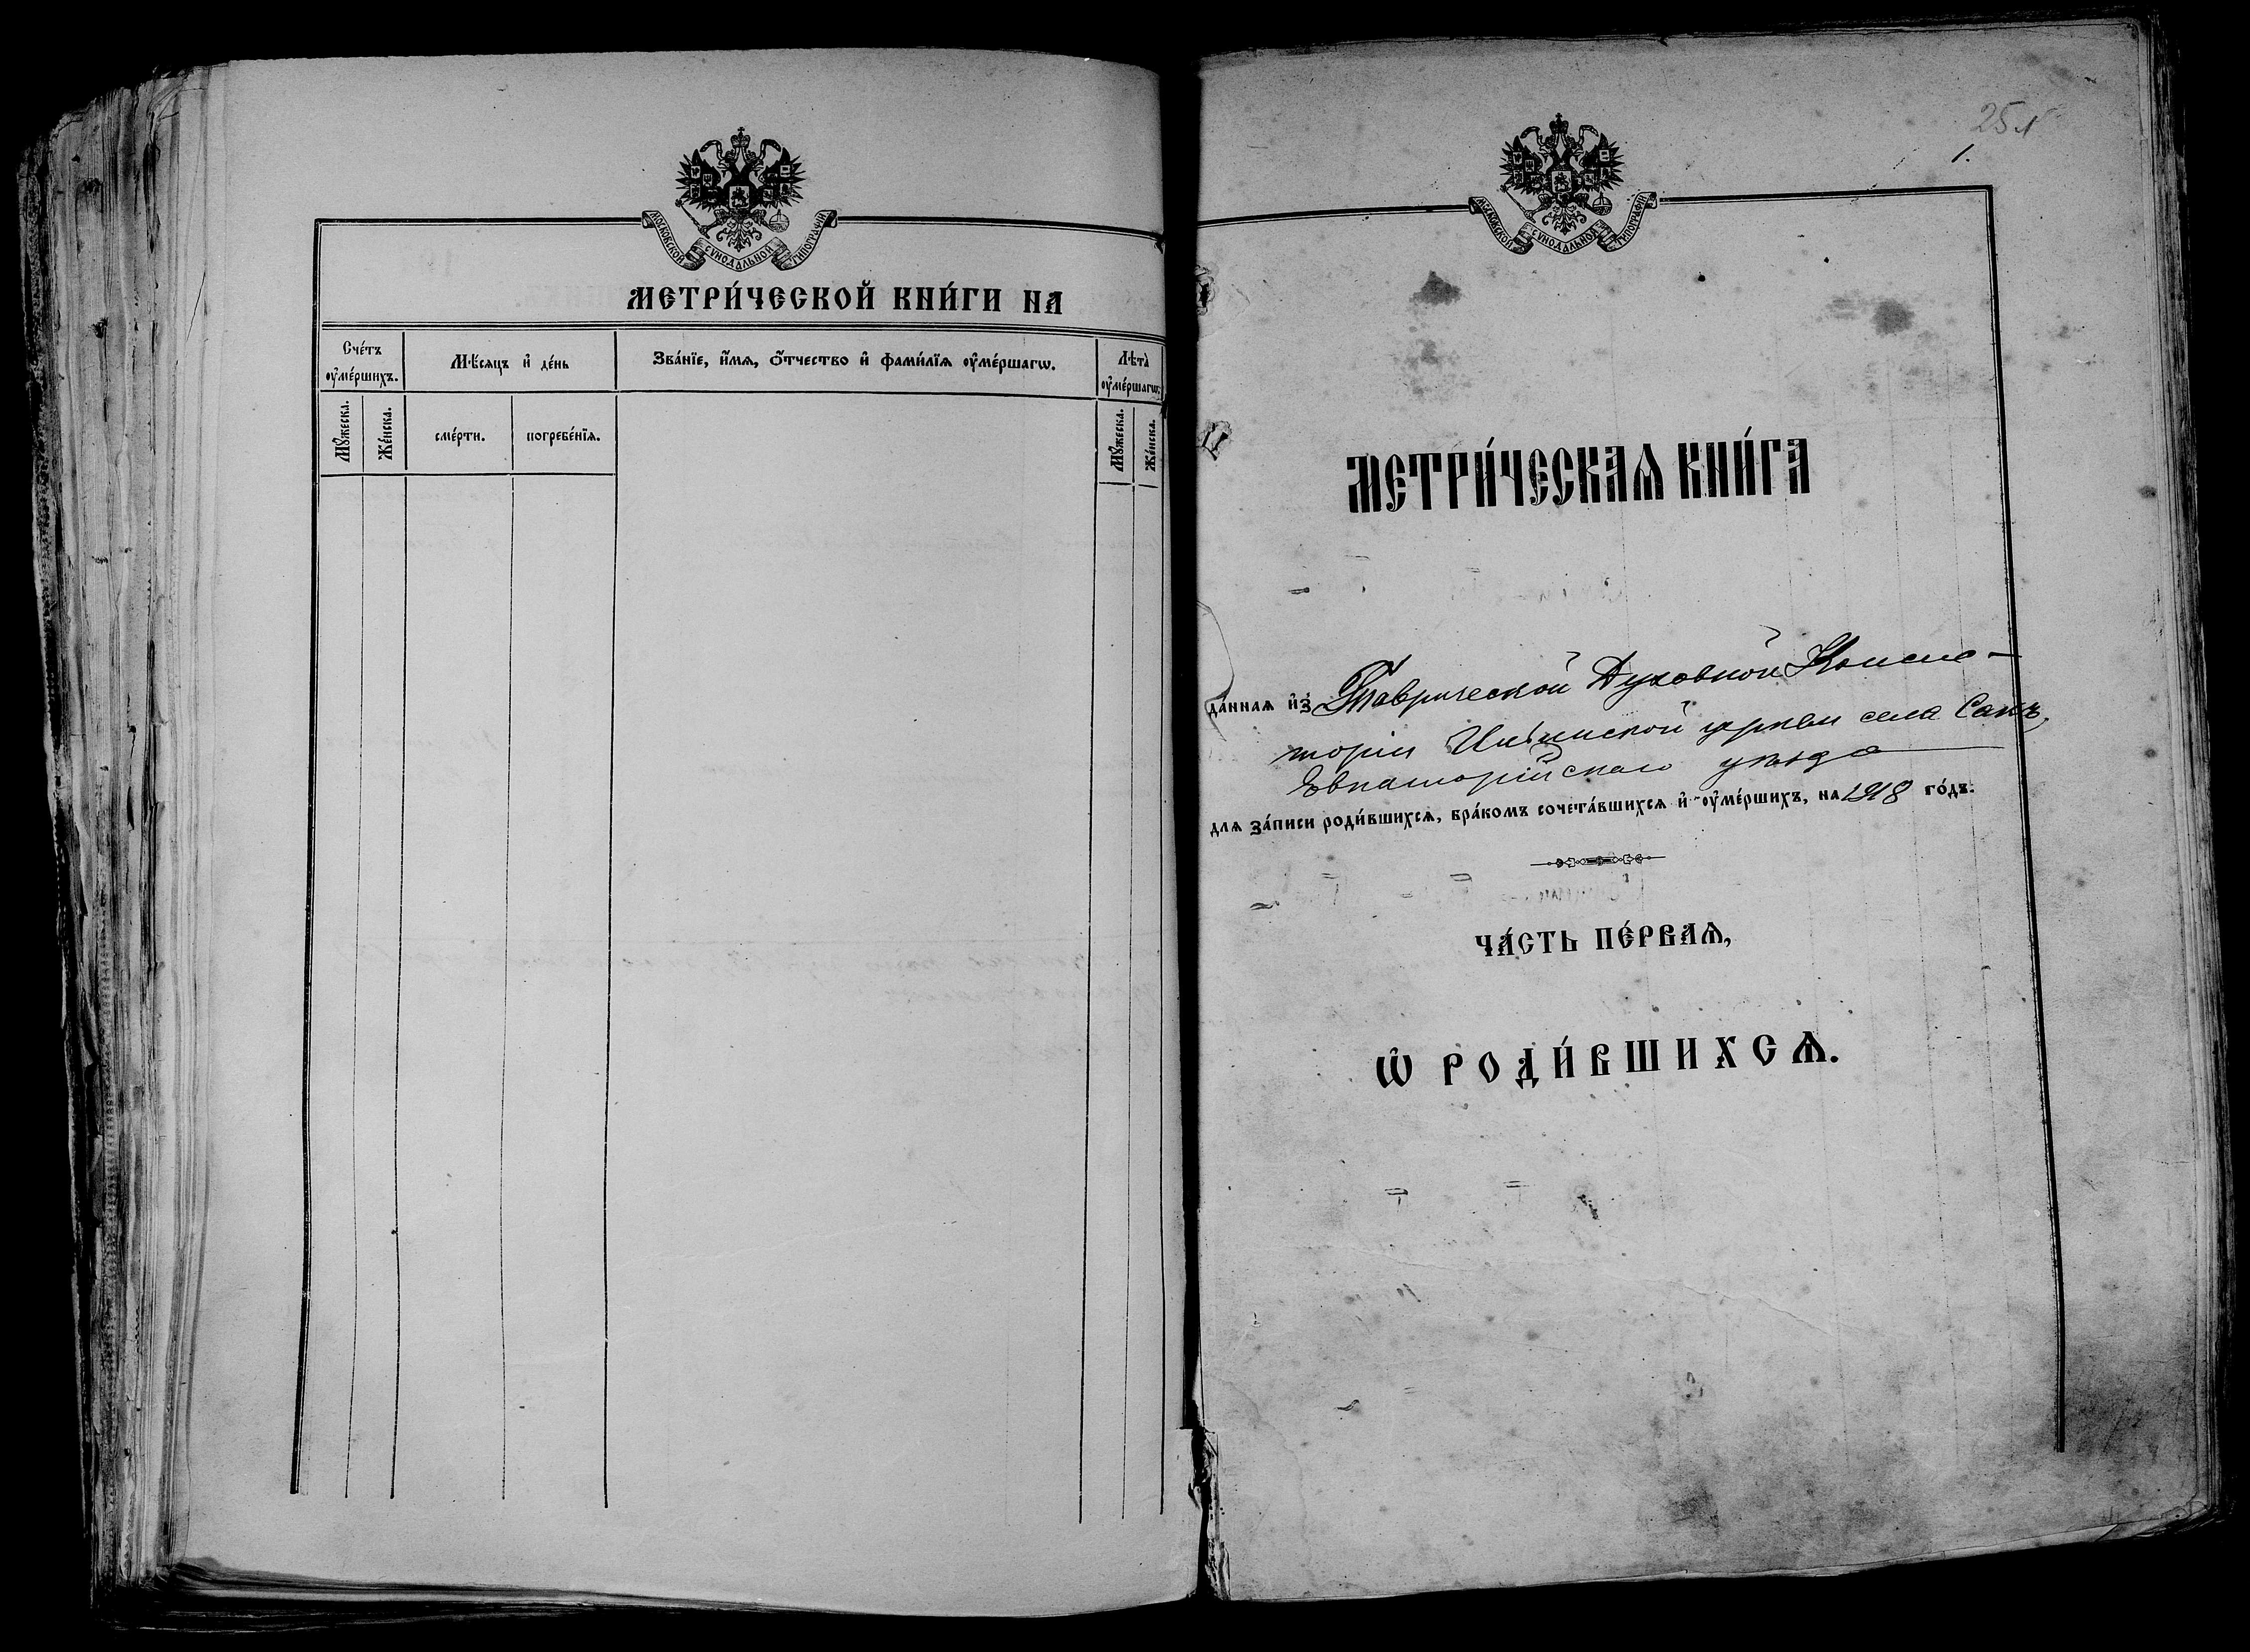 МОСКОВСКОЙ СѴНОДАЛЬНОЙ ТИПОГРАФІИ
МЕТРИ́ЧЕСКОЙ КНИ́ГИ НА
Сче́тъ ᲂу҆ме́ршихъ.
Мѣ́сѧцъ и҆ де́нь
Зва́нїе, и҆́мѧ, ѻ҆́тчество и҆ фами́лїѧ ᲂу҆ме́ршагѡ.
Лѣта̀ ᲂу҆ме́ршагѡ.
Мꙋ́жеска.
Же́нска.
сме́рти.
погребе́нїѧ.
Мꙋ́жеска.
Же́нска.
25 л
1.
МОСКОВСКОЙ СѴНОДАЛЬНОЙ ТИПОГРАФІИ
МЕТРИ́ЧЕСКАѦ КНИ́ГА
да́ннаѧ и҆з̾ Таврической Духовной Консис-
торіи Ильинской церкви села Сакъ,
Евпаторійскаго уѣзда
длѧ за́писи роди́вшихсѧ, бра́комъ сочета́вшихсѧ и҆ ᲂу҆ме́ршихъ, на 1918 го́дъ.
ЧА́СТЬ ПЕ́РВАѦ,
Ѡ҆ РОДИ́ВШИХСѦ.